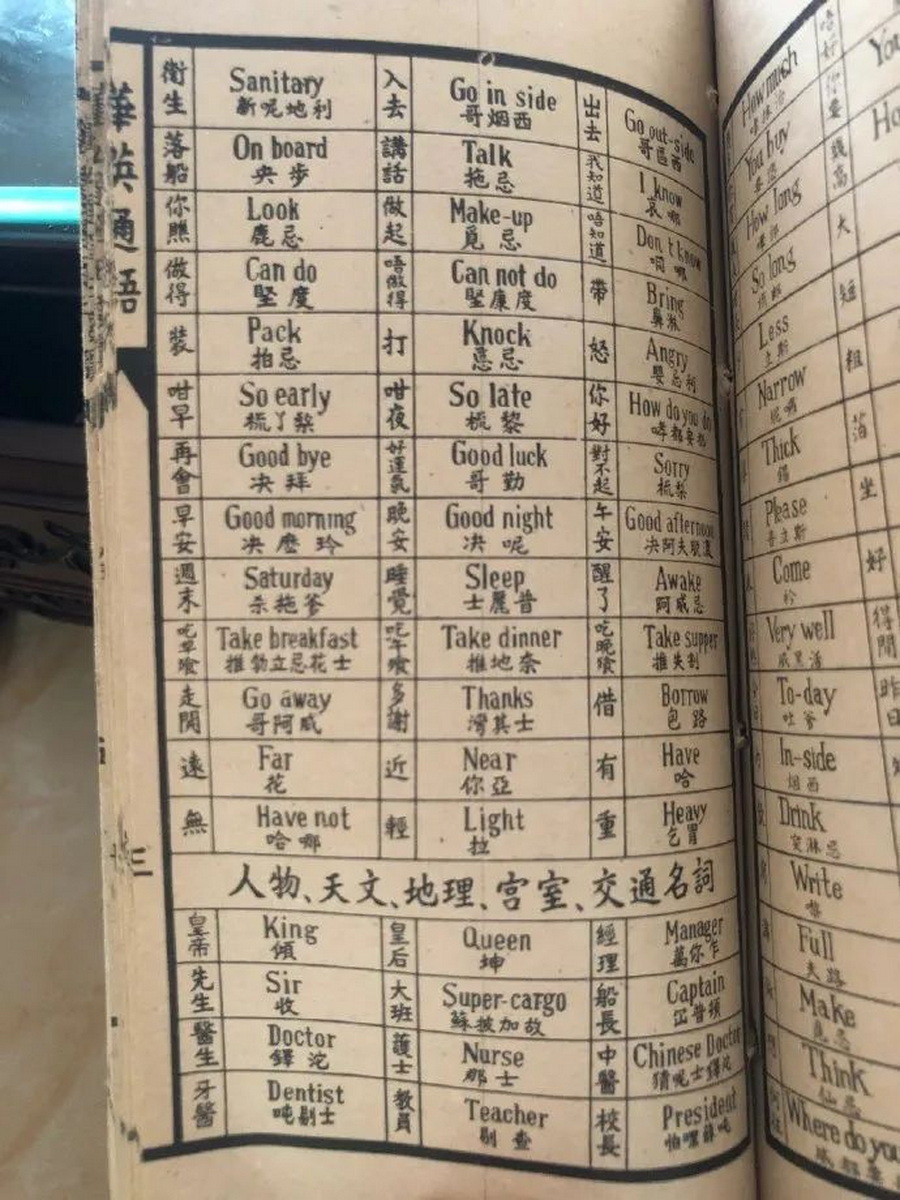 華英通語
衛生 Sanitary 入去 Go in side 出去 Go out-side
新呢地利 哥烟西 哥區西
落船 On board 講話 Talk 我知道 I know
央步 拖忌 哀哪
你瞧 Look 做起 Make-up 唔知道 Don't know
鹿忌 覓忌
做得 Can do 唔做得 Can not do 帶 Bring
堅度 堅廉度 鼻淋
裝 Pack 打 Knock 怒 Angry
拍忌 忌 嬰忌利
咁早 So early 咁夜 So late 你好 How do you do
梳丫梨 梳黎
再會 Good bye 好運氣 Good luck 對不起 Sorry
决拜 哥勤 梳梨
早安 Good morning 晚安 Good night 午安 Good afternoon
决麽玲 决呢 决阿夫
週末 Saturday 睡覺 Sleep 醒了 Awake
杀拖爹 士麗昔 阿威忌
吃早飡 Take breakfast 吃午飡 Take dinner 吃晚飡 Take supper
推勃立忌花士 推地奈 推失利
走開 Go away 多謝 Thanks 借 Borrow
哥阿威 灣其士 包路
遠 Far 近 Near 有 Have
花 你亞 哈
無 Have not 輕 Light 重 Heavy
哈哪 拉 乞胃
三
人物、天文、地理、宫室、交通名詞
皇帝 King 皇后 Queen 經理 Manager
傾 坤 萬你乍
先生 Sir 大班 Super-cargo 船長 Captain
收 蘇披加故
醫生 Doctor 護士 Nurse 中醫 Chinese Doctor
鐸沱 那士 猜呢士鐸沱
牙醫 Dentist 教員 Teacher 校長 President
吨剔士 剔查
How much
You buy
How long
大
So long
短
Less 粗
立斯
Narrow
Thick 坐
Please
Come 好
Very well 得閒
To-day 昨日
吐爹
In-side
烟西
Drink
Write
Full
夫路
Make
覓忌
Think
仙忌
Where do you